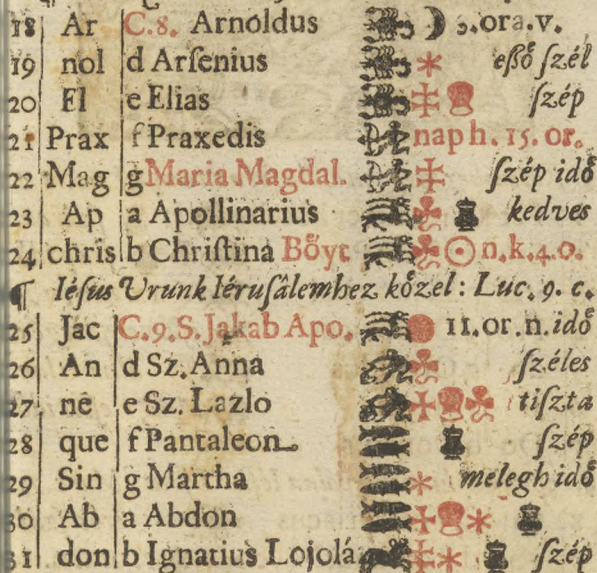 18 Ar C.8. Arnoldus .ora.v.
19 nol d Arſenius eßo̊ ſzél
20 El e Elias ſzép
21 Prax f Praxedis nap h. 15. or.
22 Mag g Maria Magdal. ſzép ido̊
23 Ap a Apollinarius kedves
24 chris b Chriſtina Bo̊yt n.k.4.0.
¶ Iéſus Urunk Iéruſâlemhez ko̊zel: Luc. 9. c.
25 Jac C.9.S.Jakab Apo. 11.or.n.ido̊
26 An d Sz.Anna ſzéles
27 ne e Sz. Lazlo tiſzta
28 que f Pantaleon ſzép
29 Sin g Martha melegh ido̊
30 Ab a Abdon
31 don b Ignatius Lojolá ſzép